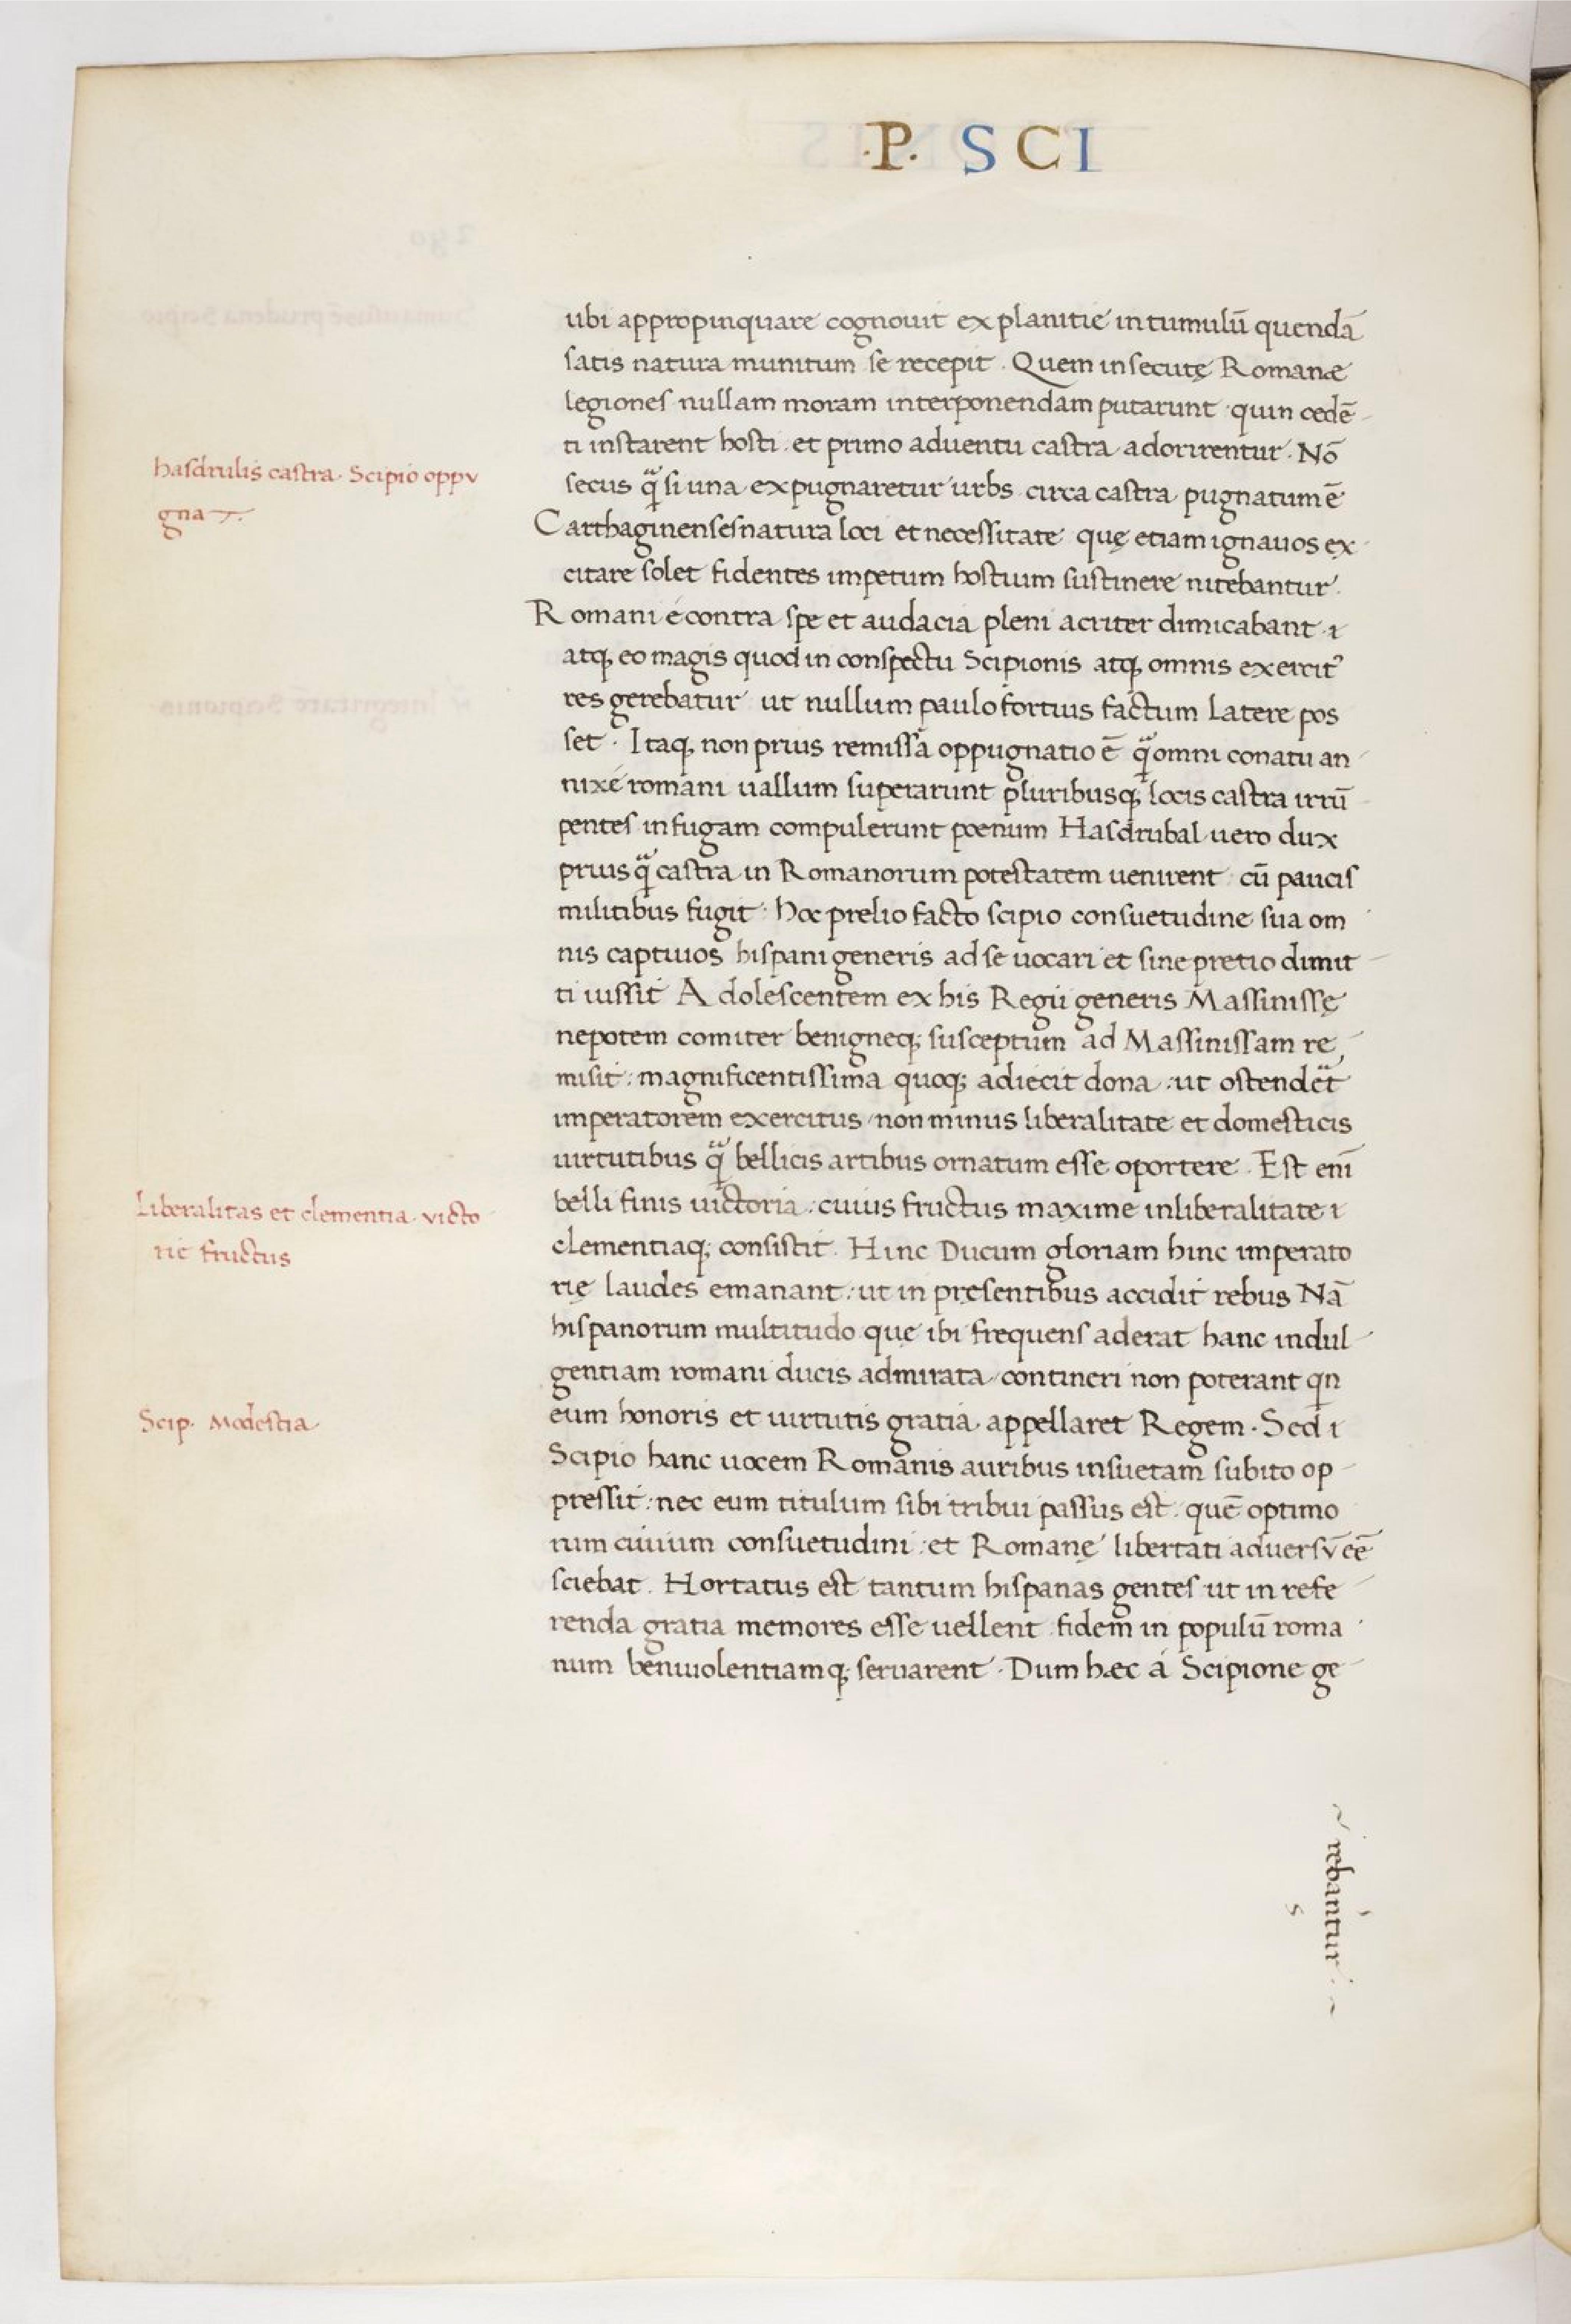 ·P· SCI
ubi appropinquare cognouit ex planitie in tumulū quendā
satis natura munitum se recepit. Quem insecutę Romanæ
legiones nullam moram interponendam putarunt quin cedē
ti instarent hosti et primo aduentu castra adorirentur. Nō
hasdrulis castra Scipio oppu
secus q̃ si una expugnaretur urbs circa castra pugnatum ē
gnat
Carthaginenses natura loci et necessitate quę etiam ignauos ex
citare solet fidentes impetum hostium sustinere nitebantur.
Romani é contra spe et audacia pleni acriter dimicabant
atq; eo magis quod in conspectu Scipionis atq; omnis exercit᾽
res gerebatur ut nullum paulo fortius factum latere pos
set. Itaq; non prius remissa oppugnatio ē q̃ omni conatu an
nixé romani uallum superarunt pluribusq; locis castra irrū
pentes in fugam compulerunt pœnum Hasdrubal uero dux
prius q̃ castra in Romanorum potestatem uenirent cū paucis
militibus fugit. hoc prelio facto scipio consuetudine sua om
nis captiuos hispani generis ad se uocari et sine pretio dimit
ti iussit Adolescentem ex his Regii generis Massinissę
nepotem comiter benigneq; susceptum ad Massinissam re
misit: magnificentissima quoq; adiecit dona: ut ostendet̃
imperatorem exercitus non minus liberalitate et domesticis
uirtutibus q̃ bellicis artibus ornatum esse oportere. Est enī
Liberalitas et clementia victo
belli finis uictoria: cuius fructus maxime in liberalitate
rie fructus
clementiaq; consistit. Hinc Ducum gloriam hinc imperato
rię laudes emanant: ut in pręsentibus accidit rebus Nā
hispanorum multitudo quę ibi frequens aderat hanc indul
gentiam romani ducis admirata contineri non poterant qn
Scip. Modestia
eum honoris et uirtutis gratia appellaret Regem. Sed
Scipio hanc uocem Romanis auribus insuetam subito op
pressit: nec eum titulum sibi tribui passus est quē optimo
rum ciuium consuetudini: et Romanę libertati aduersū eē
sciebat. Hortatus est tantum hispanas gentes ut in refe
renda gratia memores esse uellent fidem in populū roma
num beniuolentiamq; seruarent. Dum hæc á Scipione ge
rebantur
s